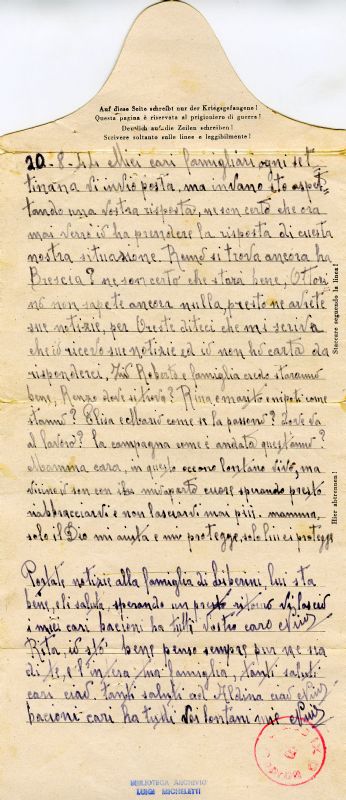 Auf diese Seite schreibt nur der Kriegsgefangene!
Questa pagina è riservata al prigioniero di guerra!
Deutlich auf die Zeilen schreiben!
Scrivere soltanto sulle linee e leggibilmente!
20-8-44 Miei cari famigliari, ogni set
timana vi invio posta, ma invano sto aspet
tando una vostra risposta, ne son certo che ora
mai verrò ha prendere la risposta di questa
nostra situazione. Remo si trova ancora ha
Brescia? ne son certo che starà bene, Otton
no non sapete ancora nulla, presto ne avrete
sue notizie, per Oreste diteci che mi scriva
che io ricevo sue notizie ed io non ho carta da
risponderci, Zio Roberto e famiglia credo staranno
bene, Renzo dove si trova? Rina e marito e nipoti come
stanno? Elisa e Mario come se la passano? dove va
al lavoro? la campagna come è andata quest'anno?
Mamma cara, in questo lontano vivo, ma
vicino vi son con il mio cuore sperando presto
riabbracciarvi e non lasciarvi mai più. mamma,
solo il Dio mi aiuta e mi protegge, solo lui ci protegge
Portate notizie alla famiglia di Liberini, lui sta
bene, vi saluta, sperando un presto ritorno vi lascio
i miei cari bacioni ha tutti vostro caro
Rita, io stò bene penso sempre pur me sia
di te, e l'intera tua famiglia, tanti saluti
cari ciao. tanti saluti ad Aldina ciao
bacioni cari ha tutti voi lontani mie
Scrivere seguendo la linea!
Hier abtrennen!
BIBLIOTECA ARCHIVIO
LUIGI MICHELETTI